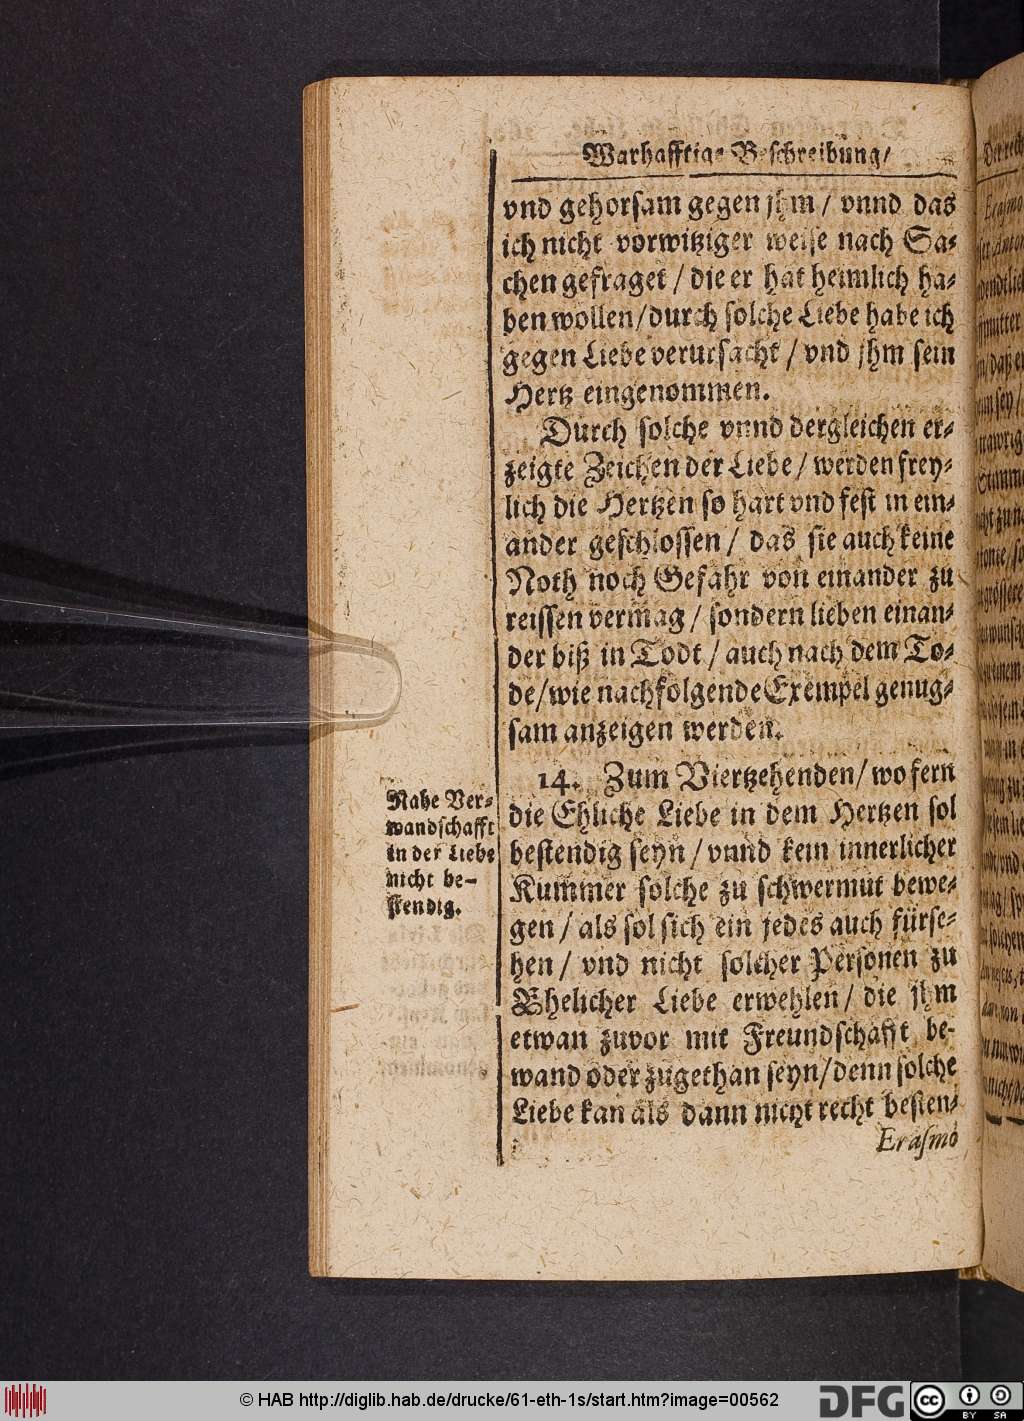 Warhafftige Beschreibung/
vnd gehorsam gegen jhm / vnnd das
ich nicht vorwitziger weise nach Sa-
chen gefraget / die er hat heimlich ha-
ben wollen/durch solche Liebe habe ich
gegen Liebe verursacht / vnd jhm sein
Hertz eingenommen.
Durch solche vnnd dergleichen er-
zeigte Zeichen der Liebe / werden frey-
lich die Hertzen so hart vnd fest in ein-
ander geschlossen / das sie auch keine
Noth noch Gefahr von einander zu
reissen vermag / sondern lieben einan-
der biß in Todt / auch nach dem To-
de/wie nachfolgende Exempel genug-
sam anzeigen werden.
14. Zum Viertzehenden/ wo fern
die Ehliche Liebe in dem Hertzen sol
bestendig seyn / vnnd kein innerlicher
Kummer solche zu schwermut bewe-
gen / als sol sich ein jedes auch fürse-
hen / vnd nicht solcher Personen zu
Ehelicher Liebe erwehlen / die jhm
etwan zuvor mit Freundschafft be-
wand oder zugethan seyn/denn solche
Liebe kan als dann nicht recht besten-
Erasmo
Nahe Ver-
wandschafft
in der Liebe
nicht be-
stendig.
© HAB http://diglib.hab.de/drucke/61-eth-1s/start.htm?image=00562
DFG
cc BY SA